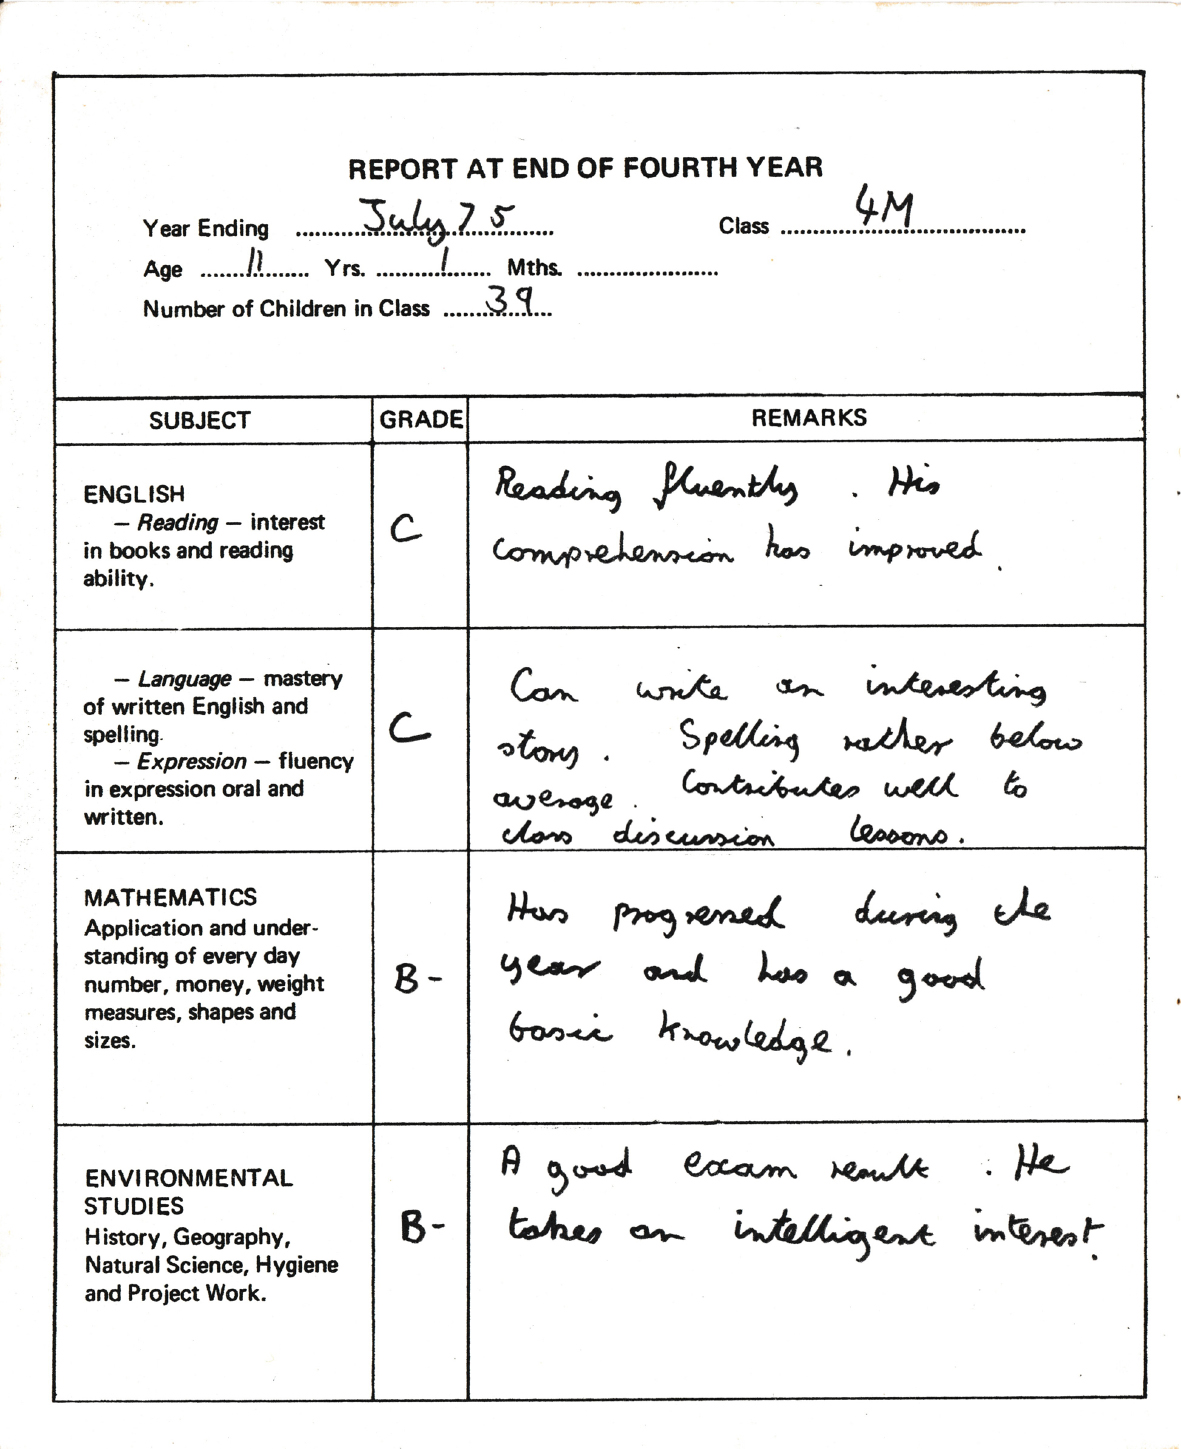 REPORT AT END OF FOURTH YEAR
Year Ending July 75 Class 4M
Age 11 Yrs. 1 Mths.
Number of Children in Class 39
SUBJECT GRADE REMARKS
ENGLISH
– Reading – interest
in books and reading
ability.
C
Reading fluently. His
comprehension has improved.
– Language – mastery
of written English and
spelling.
– Expression – fluency
in expression oral and
written.
C
Can write an interesting
story. Spelling rather below
average. Contributes well to
class discussion lessons.
MATHEMATICS
Application and under-
standing of every day
number, money, weight
measures, shapes and
sizes.
B-
Has progressed during the
year and has a good
basic knowledge.
ENVIRONMENTAL
STUDIES
History, Geography,
Natural Science, Hygiene
and Project Work.
B-
A good exam result. He
takes an intelligent interest.